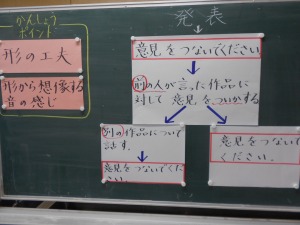 かんしょう
ポイント
形の工夫
形から想像する
音の感じ
発表
意見をつないでください
前の人が言った作品に
対して意見をついかする
別の作品について
話す。
意見をつないでくだ
さい。
意見をつないで
ください。